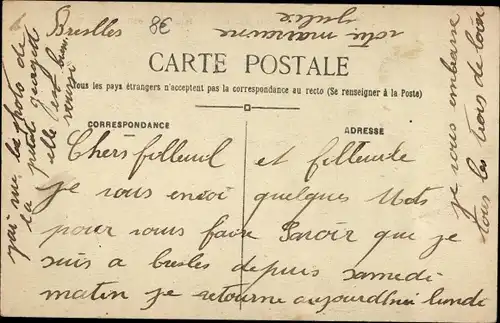 Breslles
8€
CARTE POSTALE
Tous les pays étrangers n'acceptent pas la correspondance au recto (Se renseigner à la Poste)
CORRESPONDANCE
ADRESSE
Chers filleul et filleude
je vous envoi quelques Mots
pour vous faire Savoir que je
suis a bresles depuis samedi
matin je retourne aujourdhui lundi
jai vue la photo de
la petite
elle est bien
reussi
je vous embrasse
tous les trois de loin
votre marraine